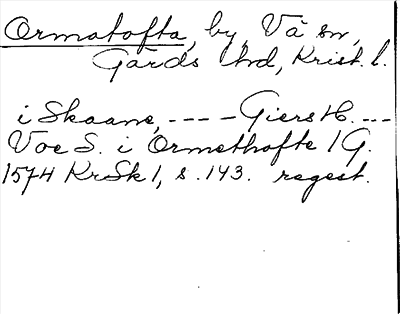 Ormatofta, by, Vä sn,
Gärds hd, Krist. l.
i Skaane, ---- Giers H. ---
Voe S. i Ormethofte 1 G.
1574 KrSk 1, s. 143. regest.